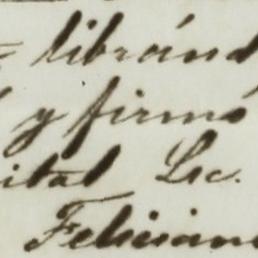 libránd
y firmó
ital Lic.
Felician